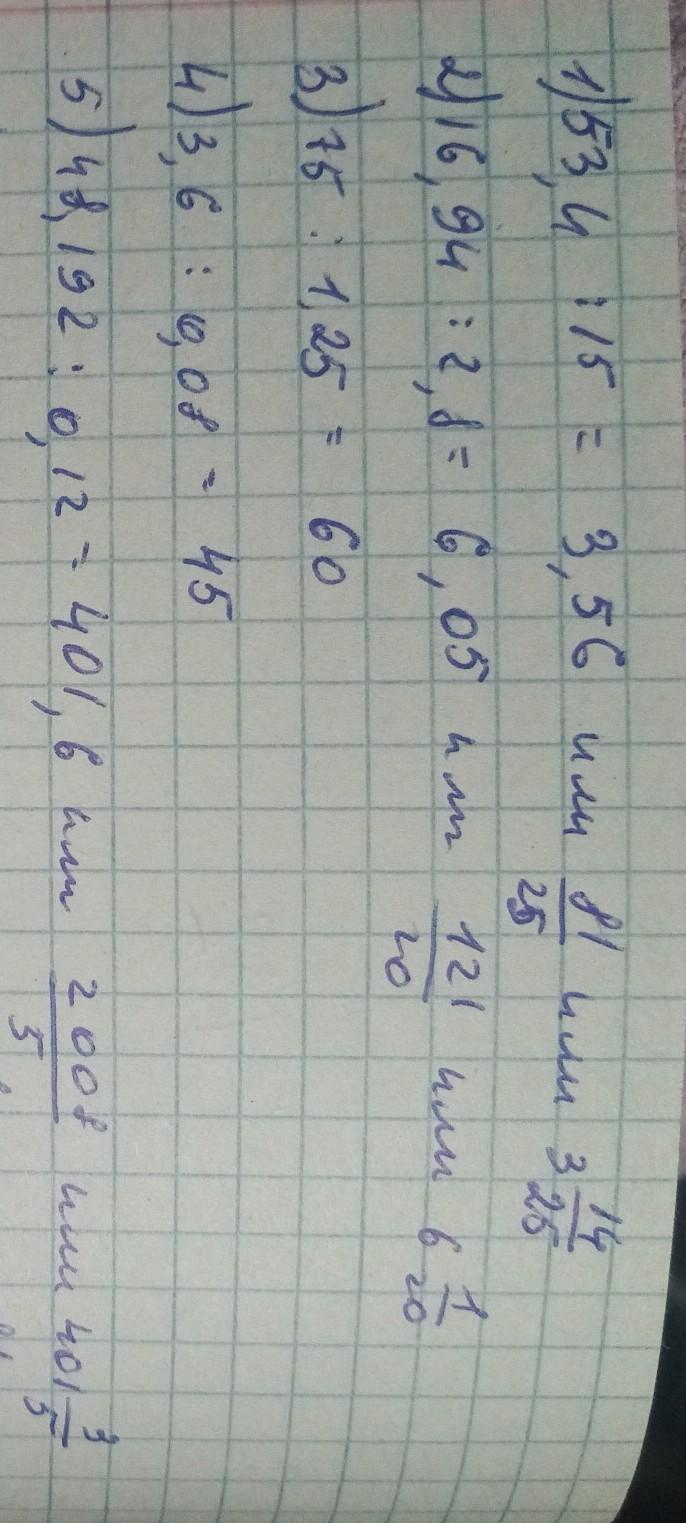 1) 53,4 : 15 = 3,56 или 81/25 или 3 14/25
2) 16,94 : 2,8 = 6,05 или 121/20 или 6 1/20
3) 75 : 1,25 = 60
4) 3,6 : 0,08 = 45
5) 48,192 : 0,12 = 401,6 или 2008/5 или 401 3/5